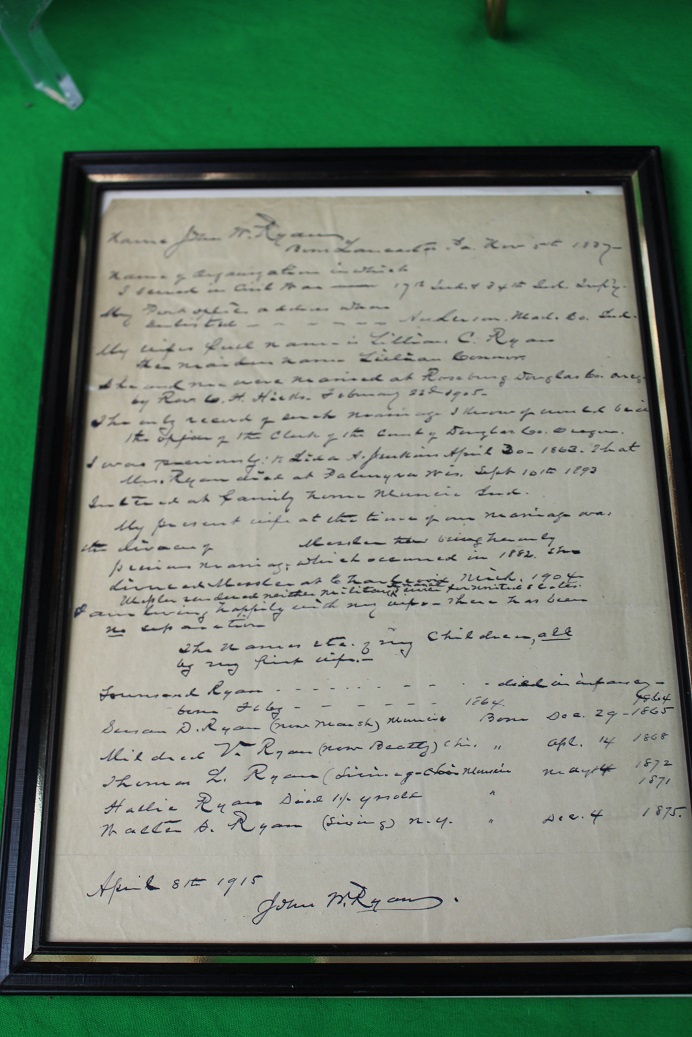 Name John W. Ryan
Born Lancaster Pa. Nov 5th 1837
Name of Organization in which
I served in Civil War 17th Ind & 34th Ind. Infty.
My Post office address when
enlisted - - - - - - Anderson, Mad. Co. Ind.
My wifes full name is Lillian C. Ryan
Her maiden name Lillian Connor
She and me were married at Roseburg Douglas Co. Oreg.
by Rev. H. Hicks. February 22d 1905-
The only record of such marriage I know of
the office of the Clerk of the County Douglas Co. Oregon.
I was previously Lida A. Jenkins April 20 - 1863. That
Mrs. Ryan died at Palmyra Wis. Sept 10th 1893
at family home Muncie Ind.
My present wife at the time of our marriage was
the divorcee of Messler her being the only
previous marriage, which occurred in 1882. She
divorced Messler at Mich. 1904
Messler rendered neither military
I am living happily with my wife - There has been
no separation
The Names etc. of my Children, all
by my first wife.-
Townsend Ryan - - - - - - - died in infancy -
born Feby - - - - - - 1864. 1864
Susan D. Ryan (now Marsh) Muncie Born Dec. 29 - 1865
Mildred V. Ryan (now Beatty) Chi. " Apl. 14 1868
Thomas L. Ryan (Living Muncie May 1872
Hallie Ryan Died " 1871
Walter S. Ryan (Living) N.Y. " Dec. 4 1875.
April 8th 1915
John W. Ryan.